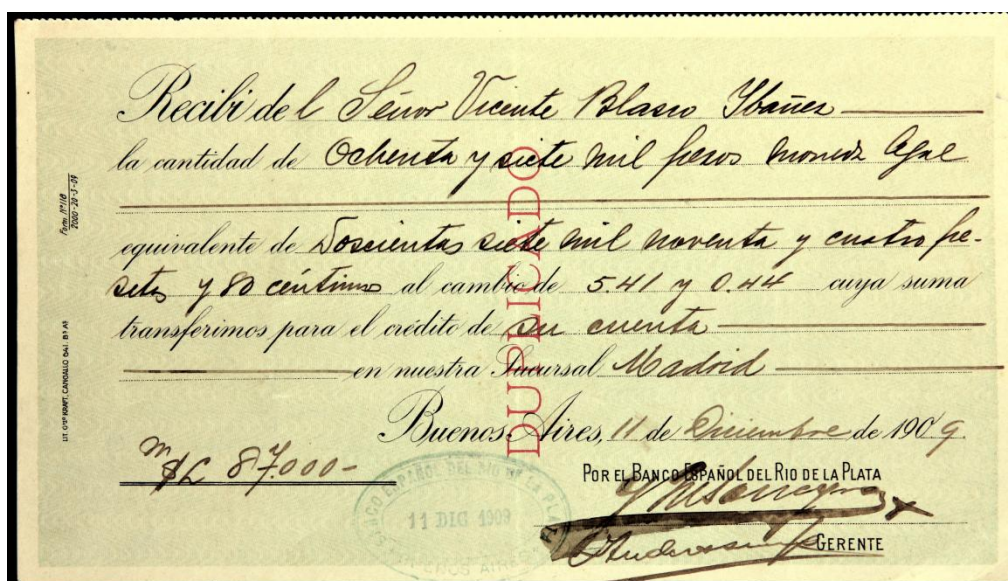 Recibí del Señor Vicente Blasco Ybáñez
la cantidad de Ochenta y siete mil pesos moneda legal
equivalente de Doscientas siete mil noventa y cuatro pe-
setas y 80 céntimos al cambio de 5.41 y 0.44 cuya suma
transferimos para el crédito de su cuenta
en nuestra Sucursal Madrid
Buenos Aires, 11 de Diciembre de 1909.
m$L 87.000-
DUPLICADO
POR EL BANCO ESPAÑOL DEL RIO DE LA PLATA
GERENTE
BANCO ESPAÑOL DEL RIO DE LA PLATA
11 DIC 1909
BUENOS AIRES
Form. Nº 116
LIT. GMO KRAFT, CANGALLO 641. Bs As